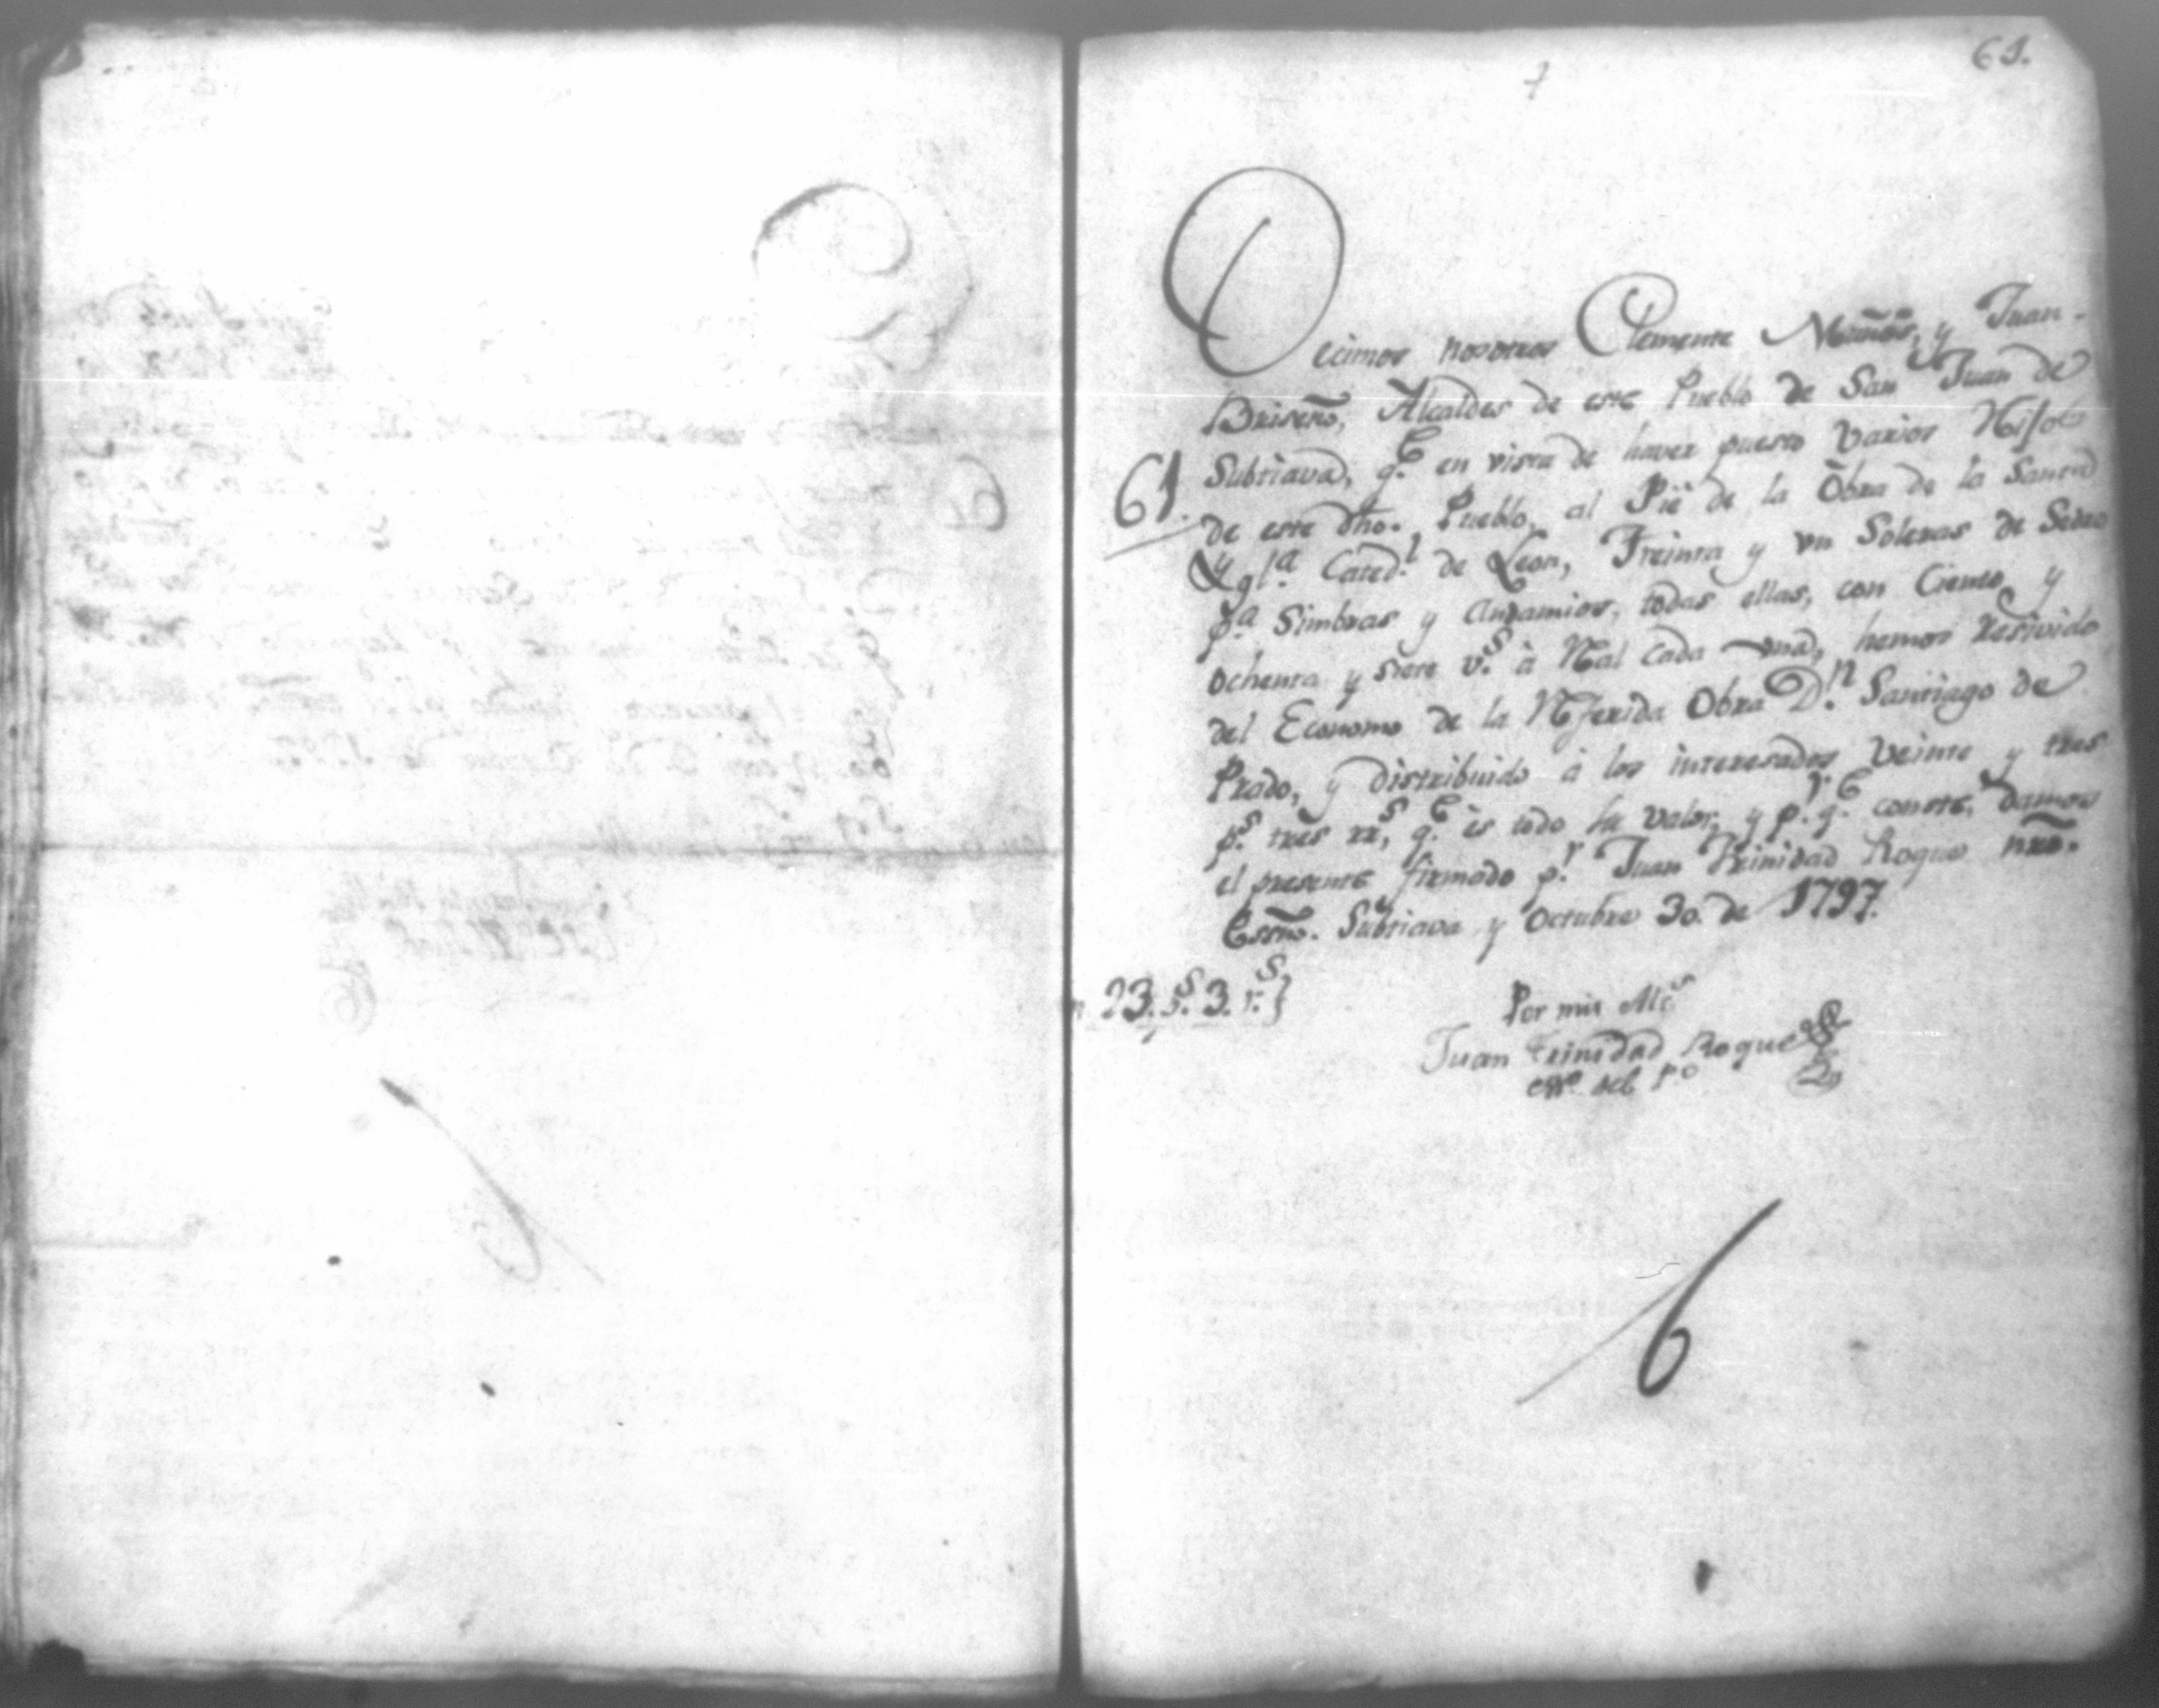 61.
Decimos nosotros Clemente y Juan
Briseño, Alcaldes de este Pueblo de San Juan de
Subtiava, q.e en vista de haver puesto varios Hijos
61. de este dho. Pueblo, al Pie de la Obra de la Santa
Ygl.a Cated.l de Leon, Treinta y un Soleras de Sedro
p.a Simbras y Andamios, todas ellas, con Ciento y
ochenta y siete v.s à Rl cada una, hemos resivido
del Economo de la Referida Obra D.n Santiago de
Prado, y distribuido à los interesados veinte y tres
p.s tres rr.s, q.e es todo su valor, y p.r q.e conste, damos
el presente firmado p.r Juan Trinidad Roque nro.
Essno. Subtiava y Octubre 30. de 1797.
23. p.s 3. r.s }
Por mis Alc.s
Juan Trinidad Roque
del P.o
6